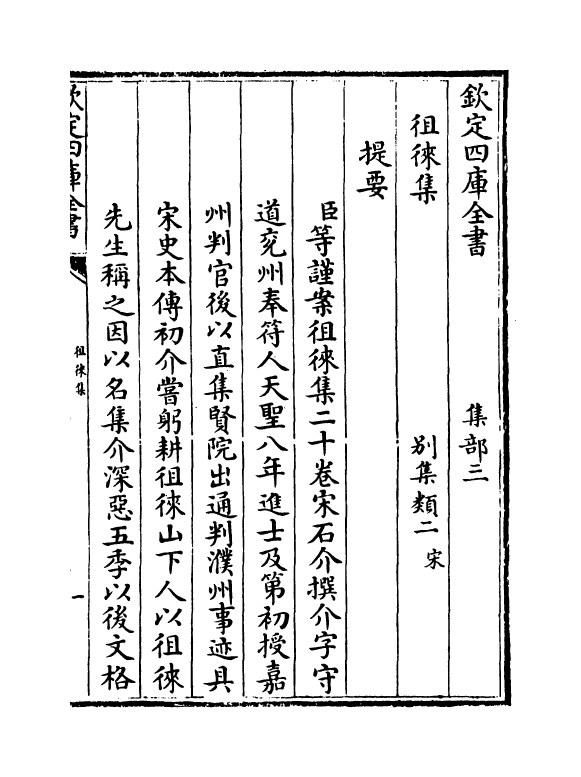 欽定四庫全書 集部三
徂徠集 别集類二 宋
提要
臣等謹案徂徠集二十卷宋石介撰介字守
道兖州奉符人天聖八年進士及第初授嘉
州判官後以直集賢院出通判濮州事迹具
宋史本傳初介嘗躬耕徂徠山下人以徂徠
先生稱之因以名集介深惡五季以後文格
欽定四庫全書
徂徠集
一